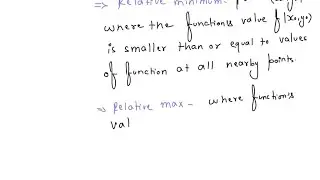 ⇒ Relative minimum:
where the function's value f(x₀,y₀)
is smaller than or equal to values
of function at all nearby points.
⇒ Relative max - where function's
val